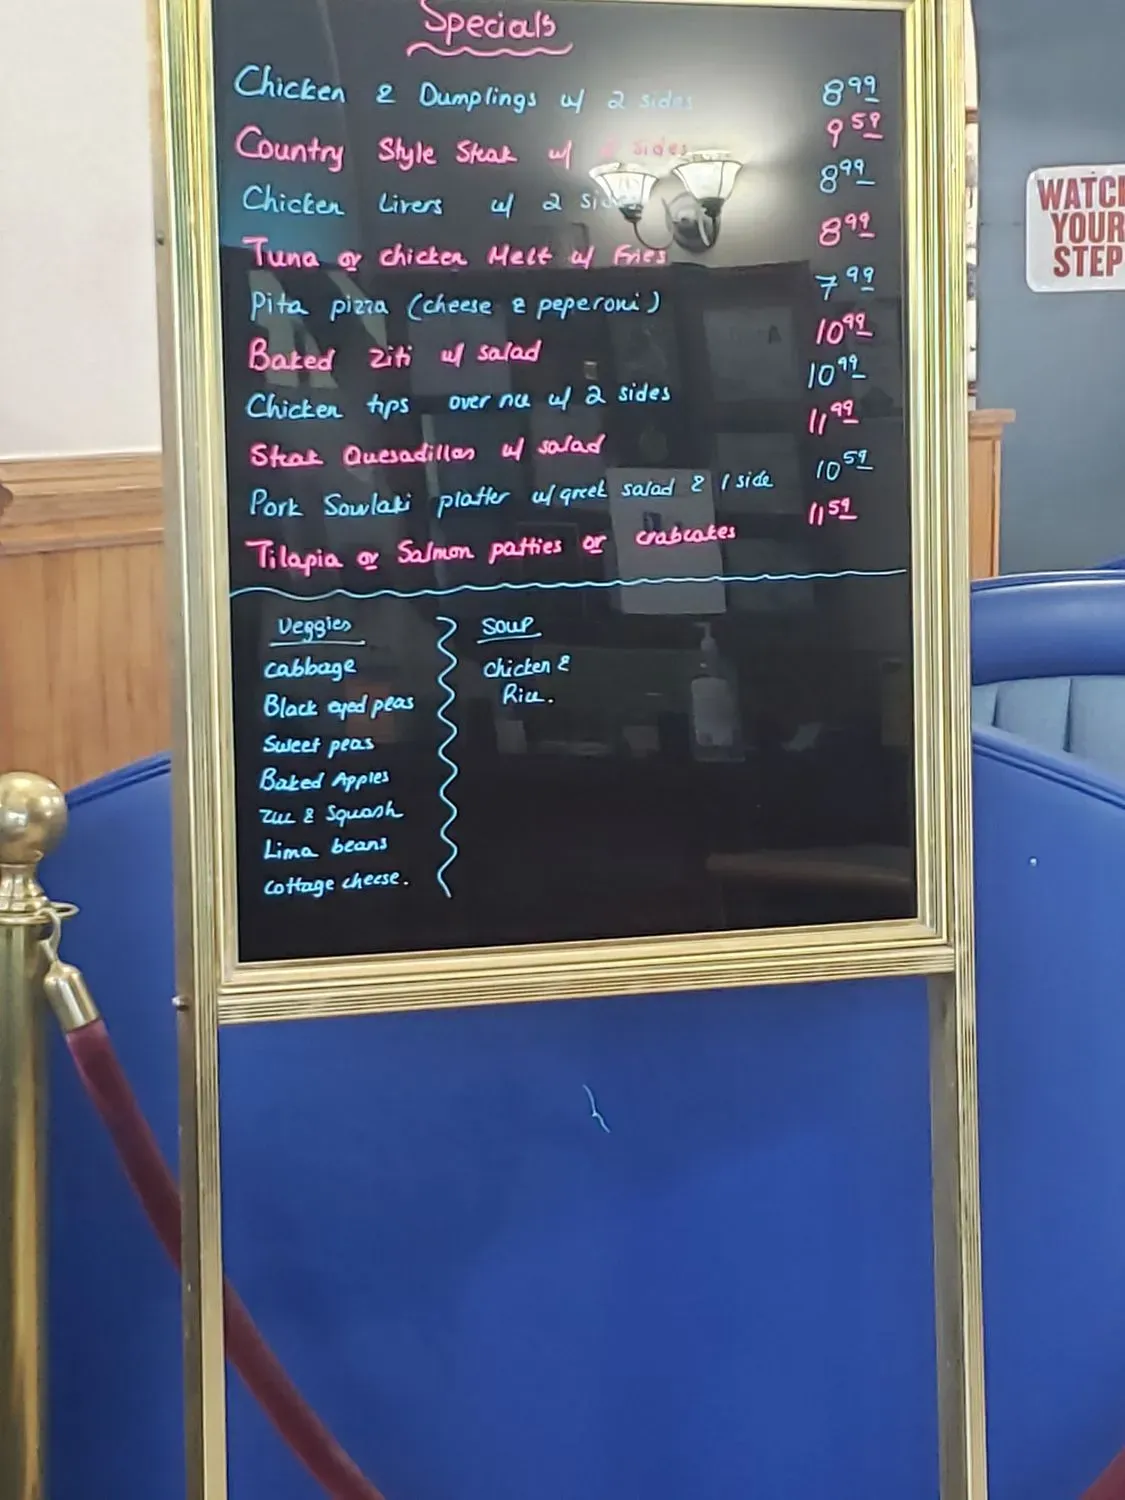 Specials
Chicken & Dumplings w/ 2 sides 8 99
Country Style Steak w/ 2 sides 9 59
Chicken Livers w/ 2 sides 8 99
Tuna or chicken Melt w/ Fries 8 99
Pita pizza (cheese & peperoni) 7 99
Baked Ziti w/ salad 10 99
Chicken tips over rice w/ 2 sides 10 99
Steak Quesadillas w/ salad 11 99
Pork Souvlaki platter w/ greek salad & 1 side 10 59
Tilapia or Salmon patties or crabcakes 11 59
Veggies
Cabbage
Black eyed peas
Sweet peas
Baked Apples
Zuc & Squash
Lima beans
Cottage cheese.
Soup
Chicken &
Rice.
WATCH
YOUR
STEP